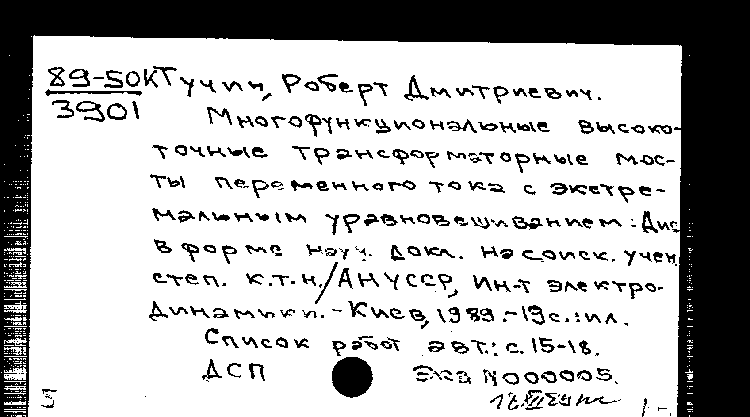 89-50К Тучин, Роберт Дмитриевич.
3901
Многофункциональные высоко-
точные трансформаторные мос-
ты переменного тока с экстре-
мальным уравновешиванием: Дис
в форме науч. докл. на соиск. учен.
степ. к.т.н./АН УССР, Ин-т электро-
динамики. - Киев, 1989. - 19с.: ил.
Список работ авт.: с. 15-18.
ДСП Экз N000005.